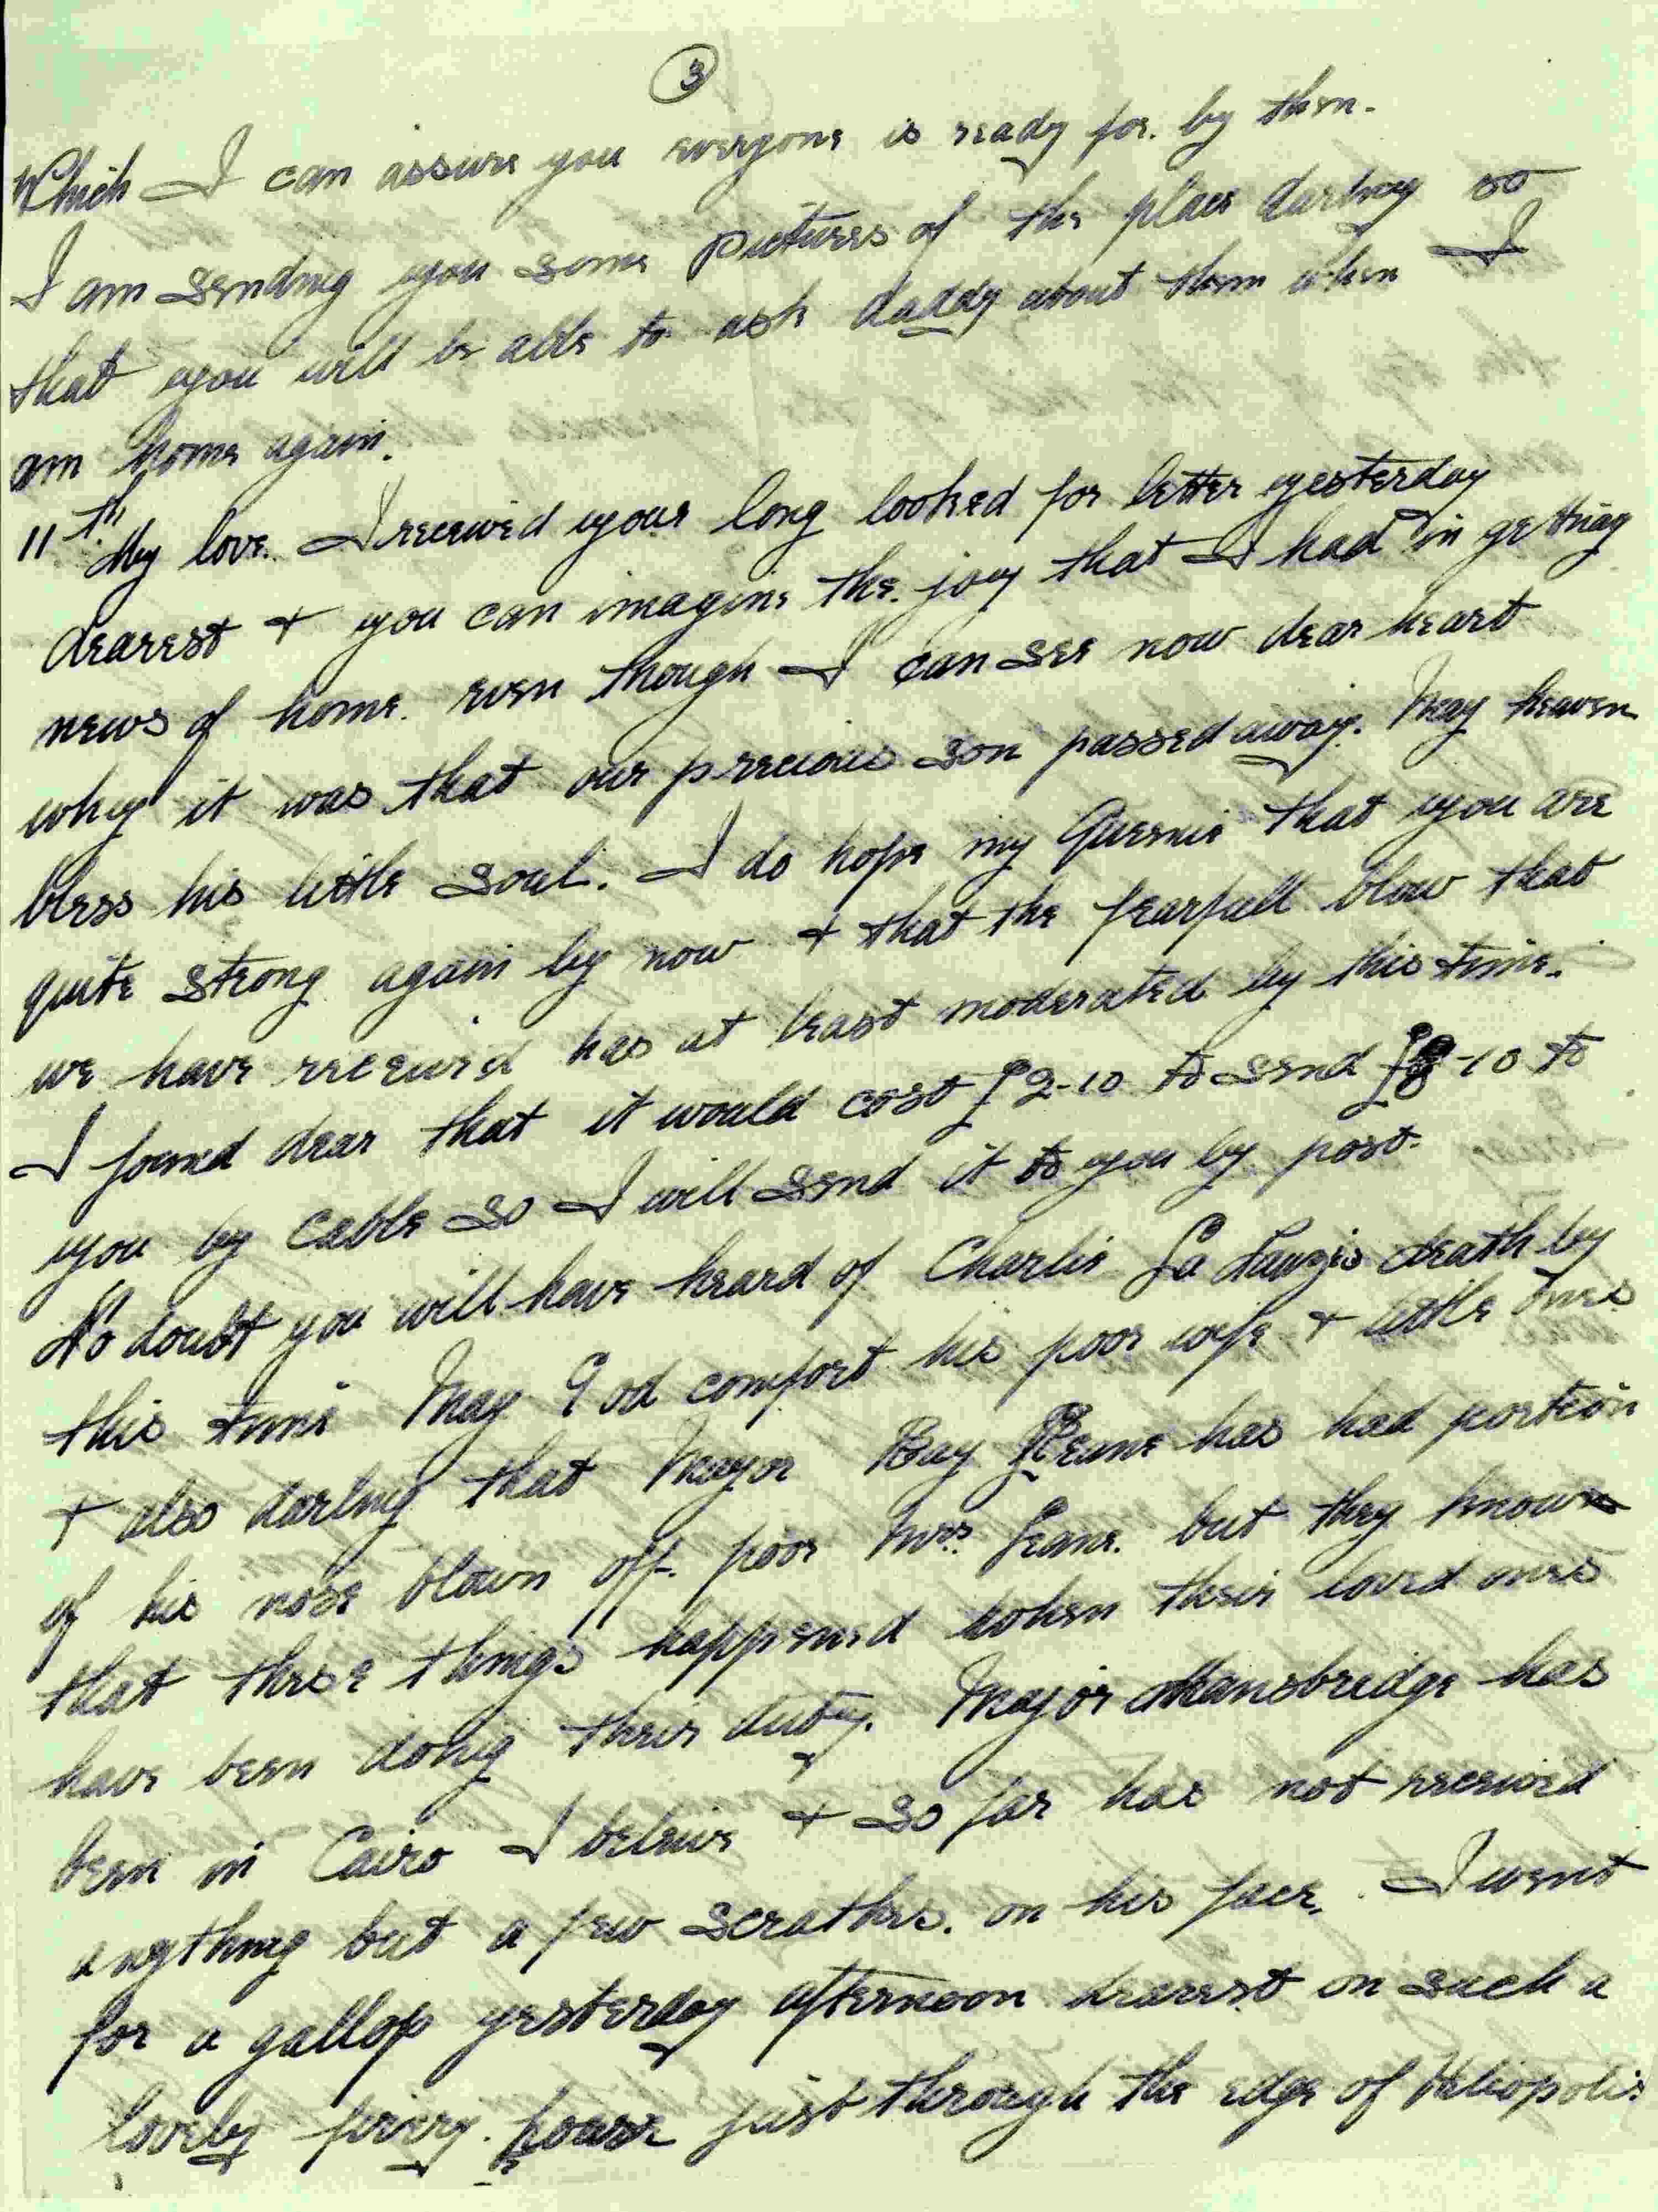 3
Which I can assure you everyone is ready for. by then.
I am sending you some pictures of the place darling so
that you will be able to ask daddy about them when I
am home again.
11th. My love. I received your long looked for letter yesterday
dearest + you can imagine the joy that I had in getting
news of home. even though I can see now dear heart
why it was that our precious son passed away. May heaven
bless his little soul. I do hope my Queenie that you are
quite strong again by now + that the fearfull blow that
we have received has at least moderated by this time.
I found dear that it would cost £2-10 to send -10 to
you by cable so I will send it to you by post.
No doubt you will have heard of Charlie La death by
this time May God comfort his poor wife + little ones
+ also darling that Mayor Ray has had portion
of his nose blown off. poor Mrs. but they know
that these things happened when their loved ones
have been doing their duty. Major Hansbridge has
been in Cairo I beleive + so far has not received
anything but a few scrathes. on his face. I went
for a gallop yesterday afternoon dearest on such a
lovely firery. hoarse just through the edge of Heliopolis